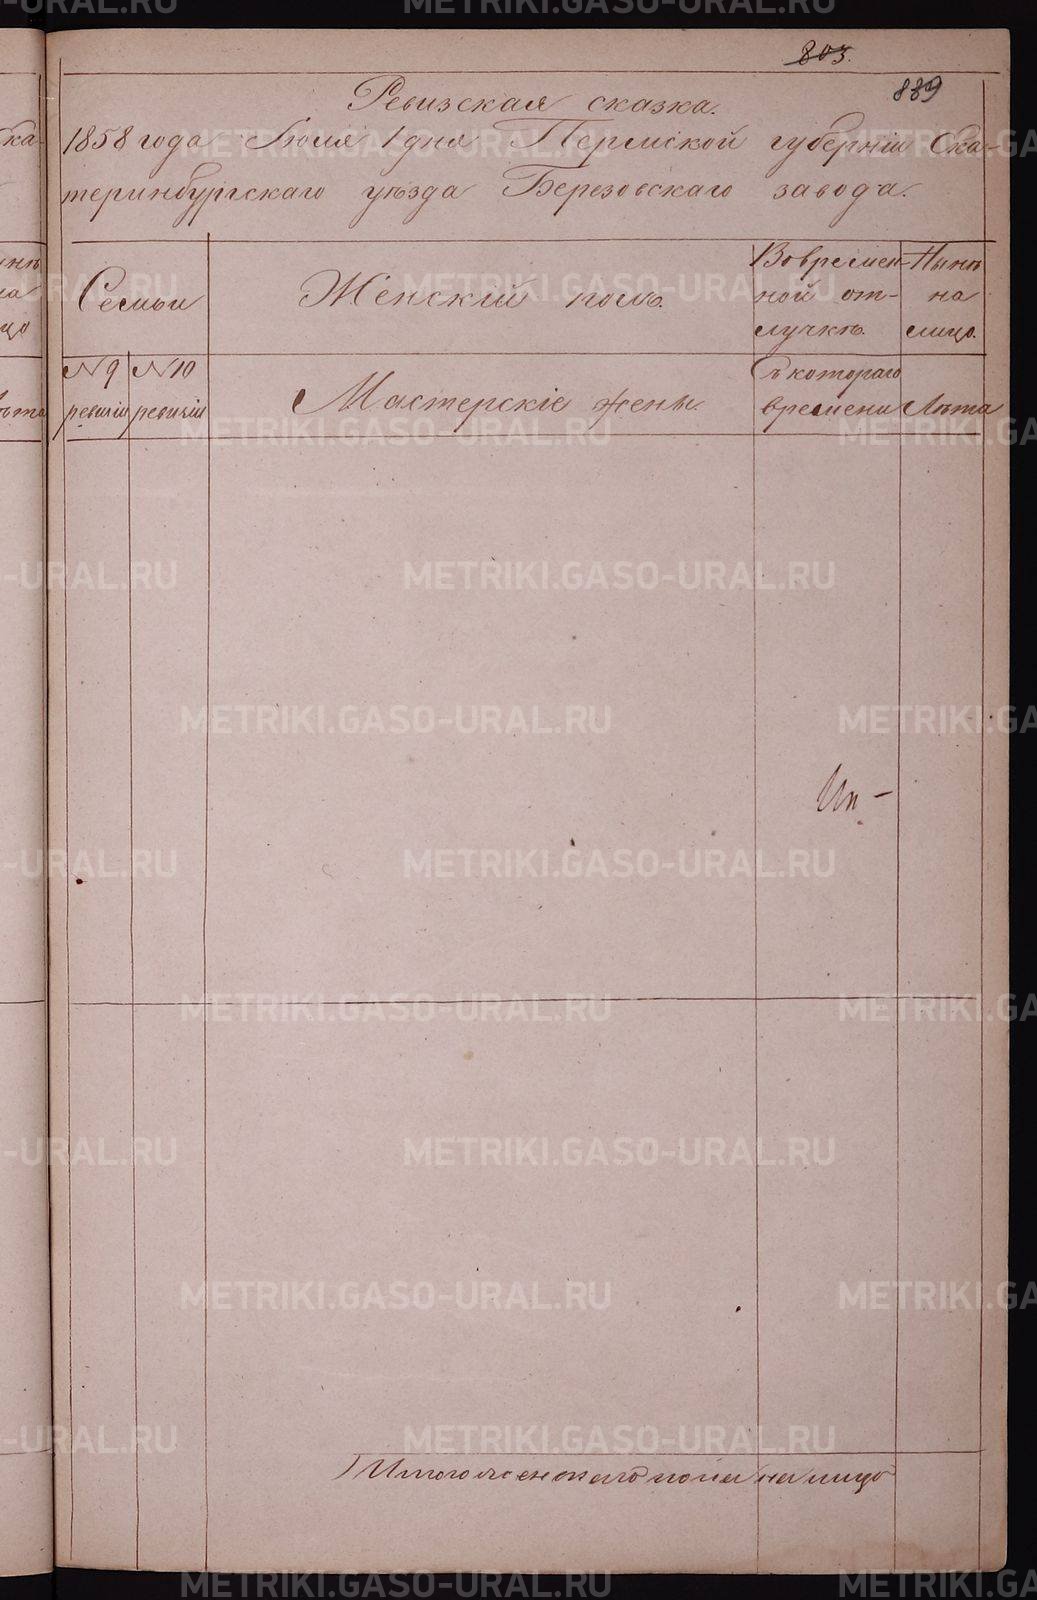 803.
889
Ревизская сказка.
1858 года Июля 1 дня Пермской губерніи Ека-
теринбургскаго уѣзда Березовскаго завода.
Семьи
Женскій полъ.
Во времен-
ной от-
лучкѣ.
Нынѣ
на
лицо.
№ 9
ревизіи
№ 10
ревизіи
Мастерскіе жены.
Съ котораго
времени
Лѣта
Итого женскаго пола на лицо
METRIKI.GASO-URAL.RU